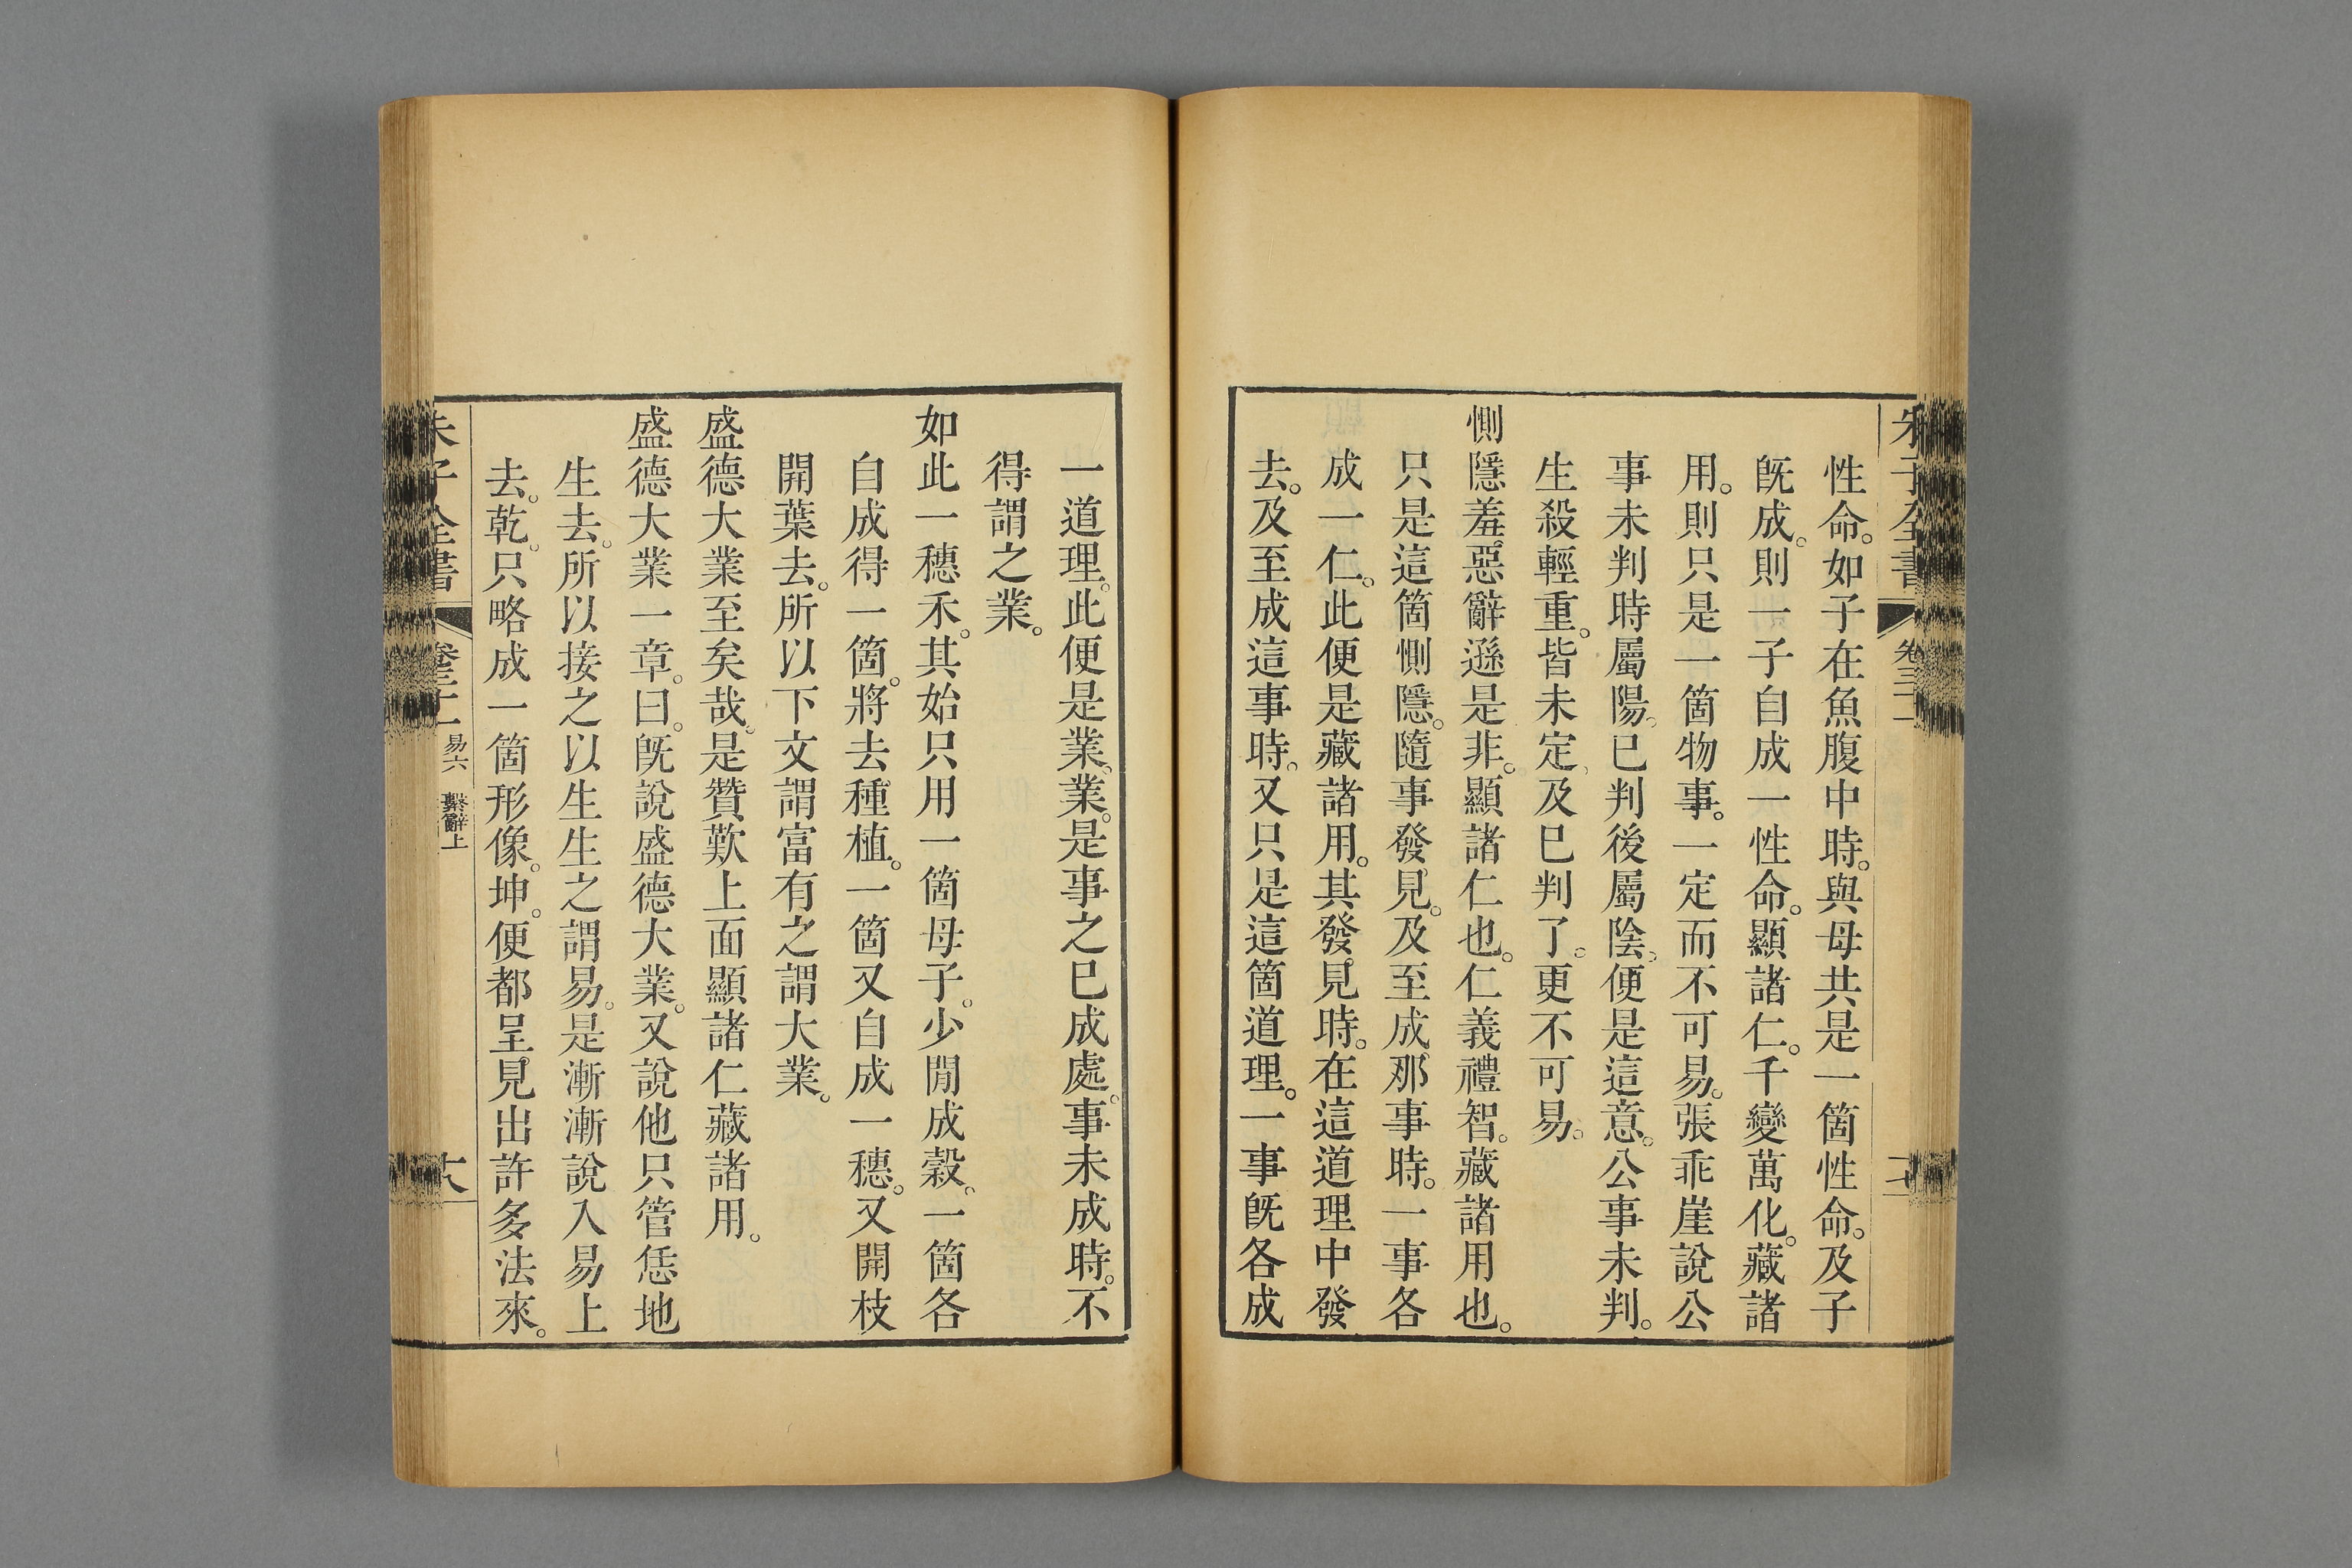 性命。如子在魚腹中時。與母共是一箇性命。及子
旣成。則一子自成一性命。顯諸仁。千變萬化。藏諸
用。則只是一箇物事。一定而不可易。張乖崖說公
事未判時屬陽。已判後屬陰。便是這意。公事未判。
生殺輕重。皆未定。及已判了。更不可易。
惻隱羞惡辭遜是非。顯諸仁也。仁義禮智。藏諸用也。
只是這箇惻隱。隨事發見。及至成那事時。一事各
成一仁。此便是藏諸用。其發見時。在這道理中發
去。及至成這事時。又只是這箇道理。一事旣各成
一道理。此便是業。業。是事之已成處。事未成時。不
得謂之業。
如此一穗禾。其始只用一箇母子。少閒成穀。一箇各
自成得一箇。將去種植。一箇又自成一穗。又開枝
開葉去。所以下文謂富有之謂大業。
盛德大業至矣哉。是贊歎上面顯諸仁藏諸用。
盛德大業一章。曰。旣說盛德大業。又說他只管恁地
生去。所以接之以生生之謂易。是漸漸說入易上
去。乾。只略成一箇形像。坤。便都呈見出許多法來。
朱子全書
易六
繫辭上